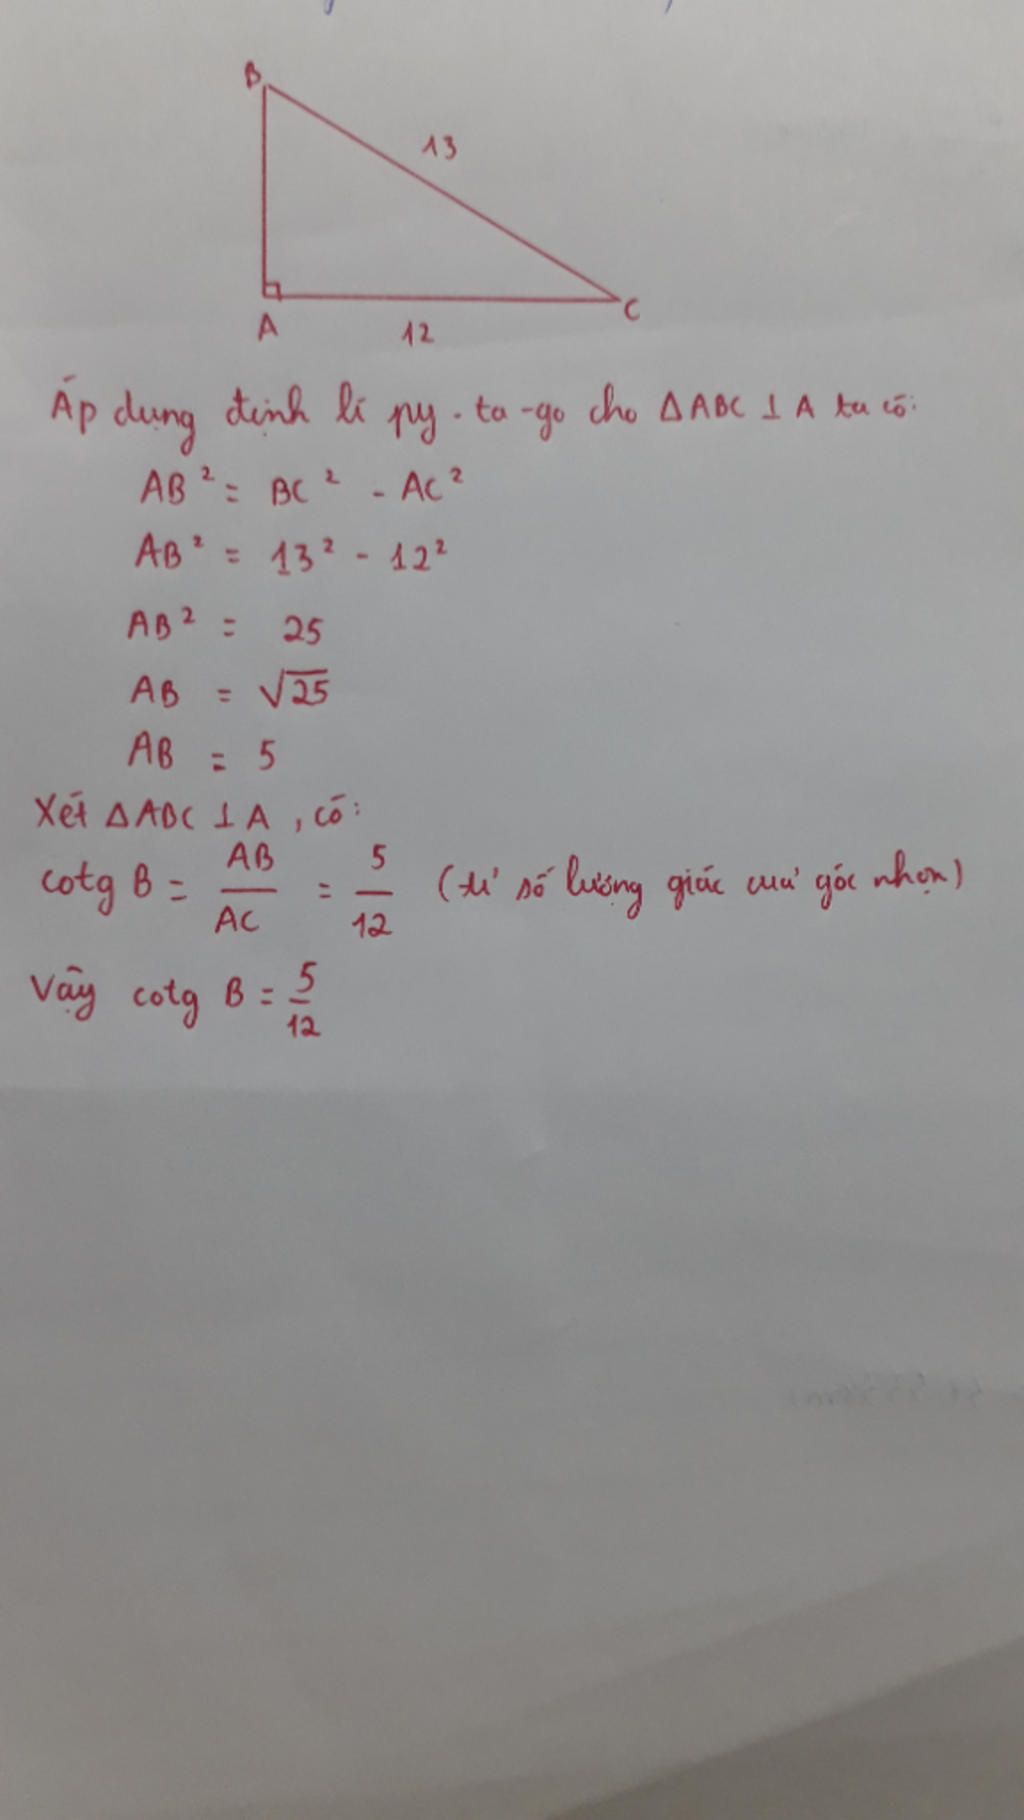 B
13
A
12
C
Áp dụng định lí py-ta-go cho ΔABC ⊥ A ta có:
AB² = BC² - AC²
AB² = 13² - 12²
AB² = 25
AB = √25
AB = 5
Xét ΔABC ⊥ A, có:
cotg B = AB/AC = 5/12 (tỉ số lượng giác của góc nhọn)
Vậy cotg B = 5/12